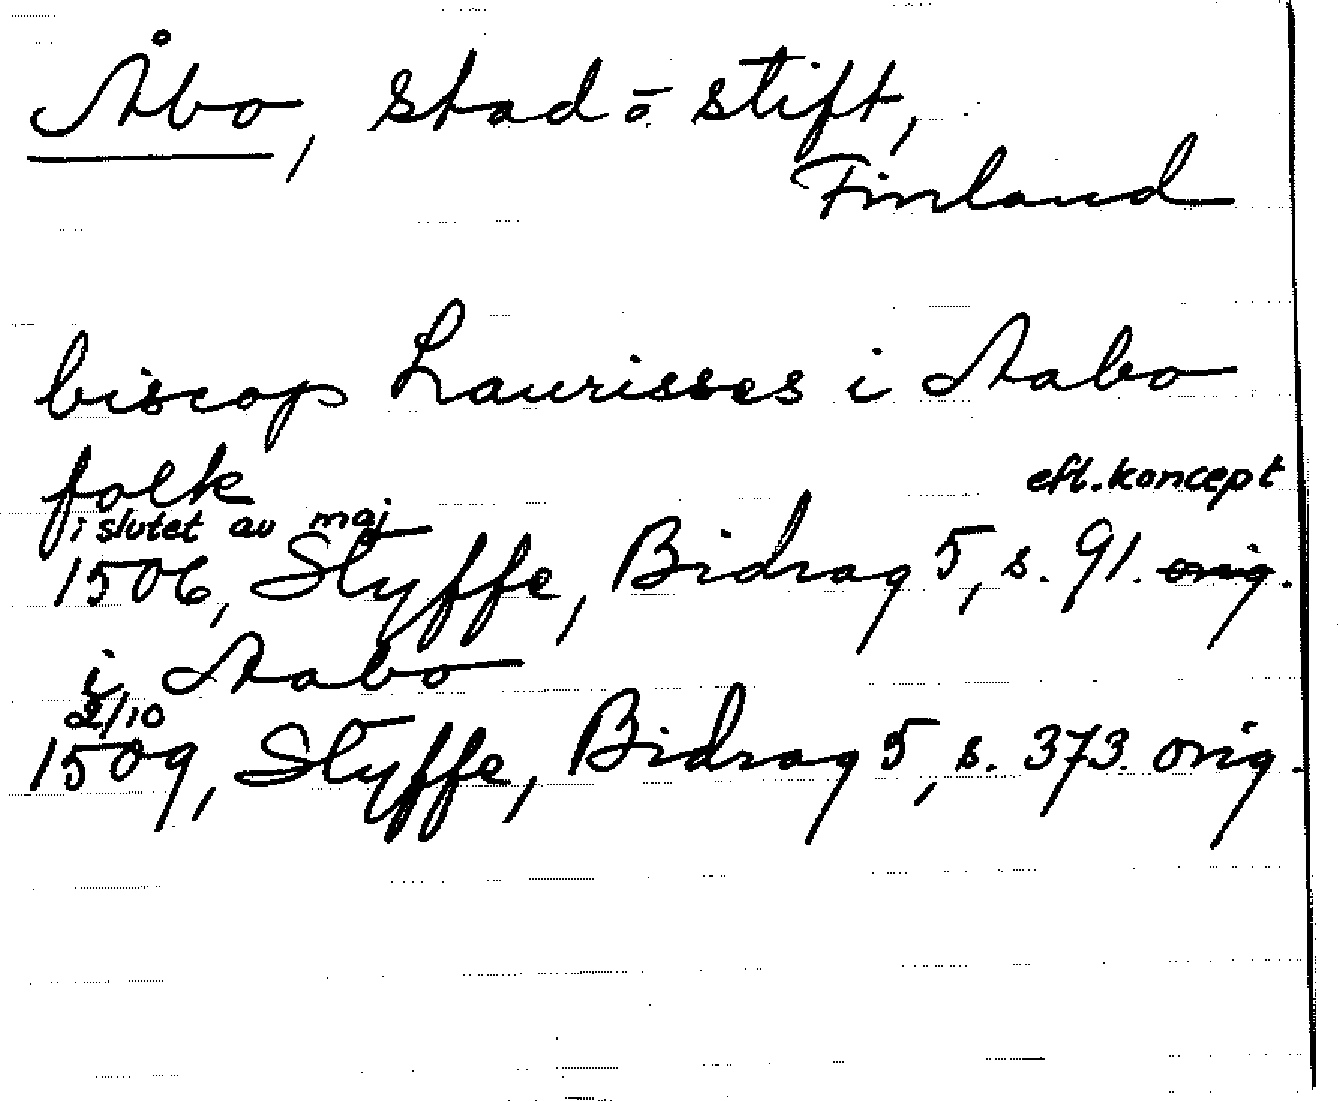 Åbo, stad o stift,
Finland
biscop Laurisses i Aabo
folk
eft. koncept
i slutet av maj
1506, Styffe, Bidrag 5, s. 91. orig.
i Aabo
2/10
1509, Styffe, Bidrag 5, s. 373. orig.